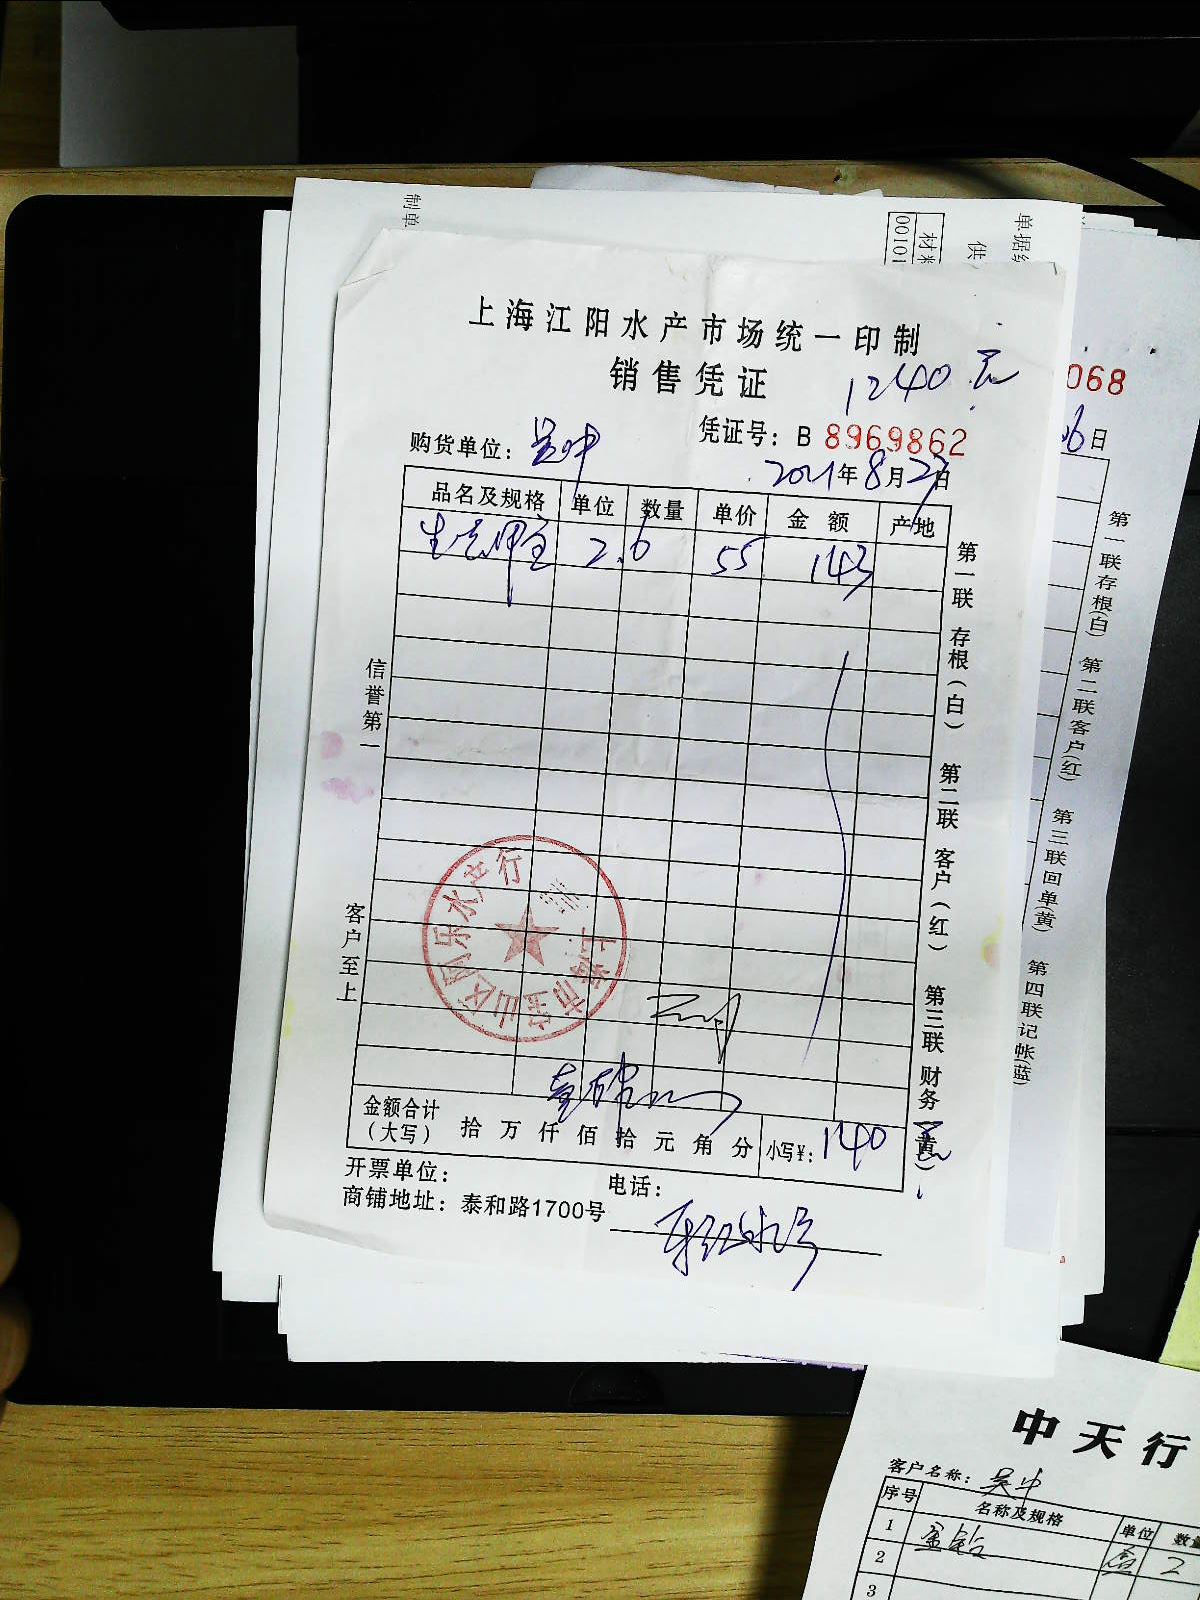 制单
单据
供
材料
00101
上海江阳水产市场统一印制
销售凭证
1240元
068
购货单位：吴中
凭证号：B 8969862
2021年8月27日
06日
品名及规格 单位 数量 单价 金额 产地
2.6 55 143
信誉第一
客户至上
第一联 存根（白） 第二联 客户（红） 第三联 财务（黄）
第一联存根(白) 第二联客户(红) 第三联回单(黄) 第四联记帐(蓝)
上海市宝山区阿乐水产行
金额合计（大写） 拾 万 仟 佰 拾 元 角 分 小写¥：140元
开票单位：
电话：
商铺地址：泰和路1700号
中天行
客户名称：吴中
序号 名称及规格 单位 数量
1 金钻 盒 2
2
3